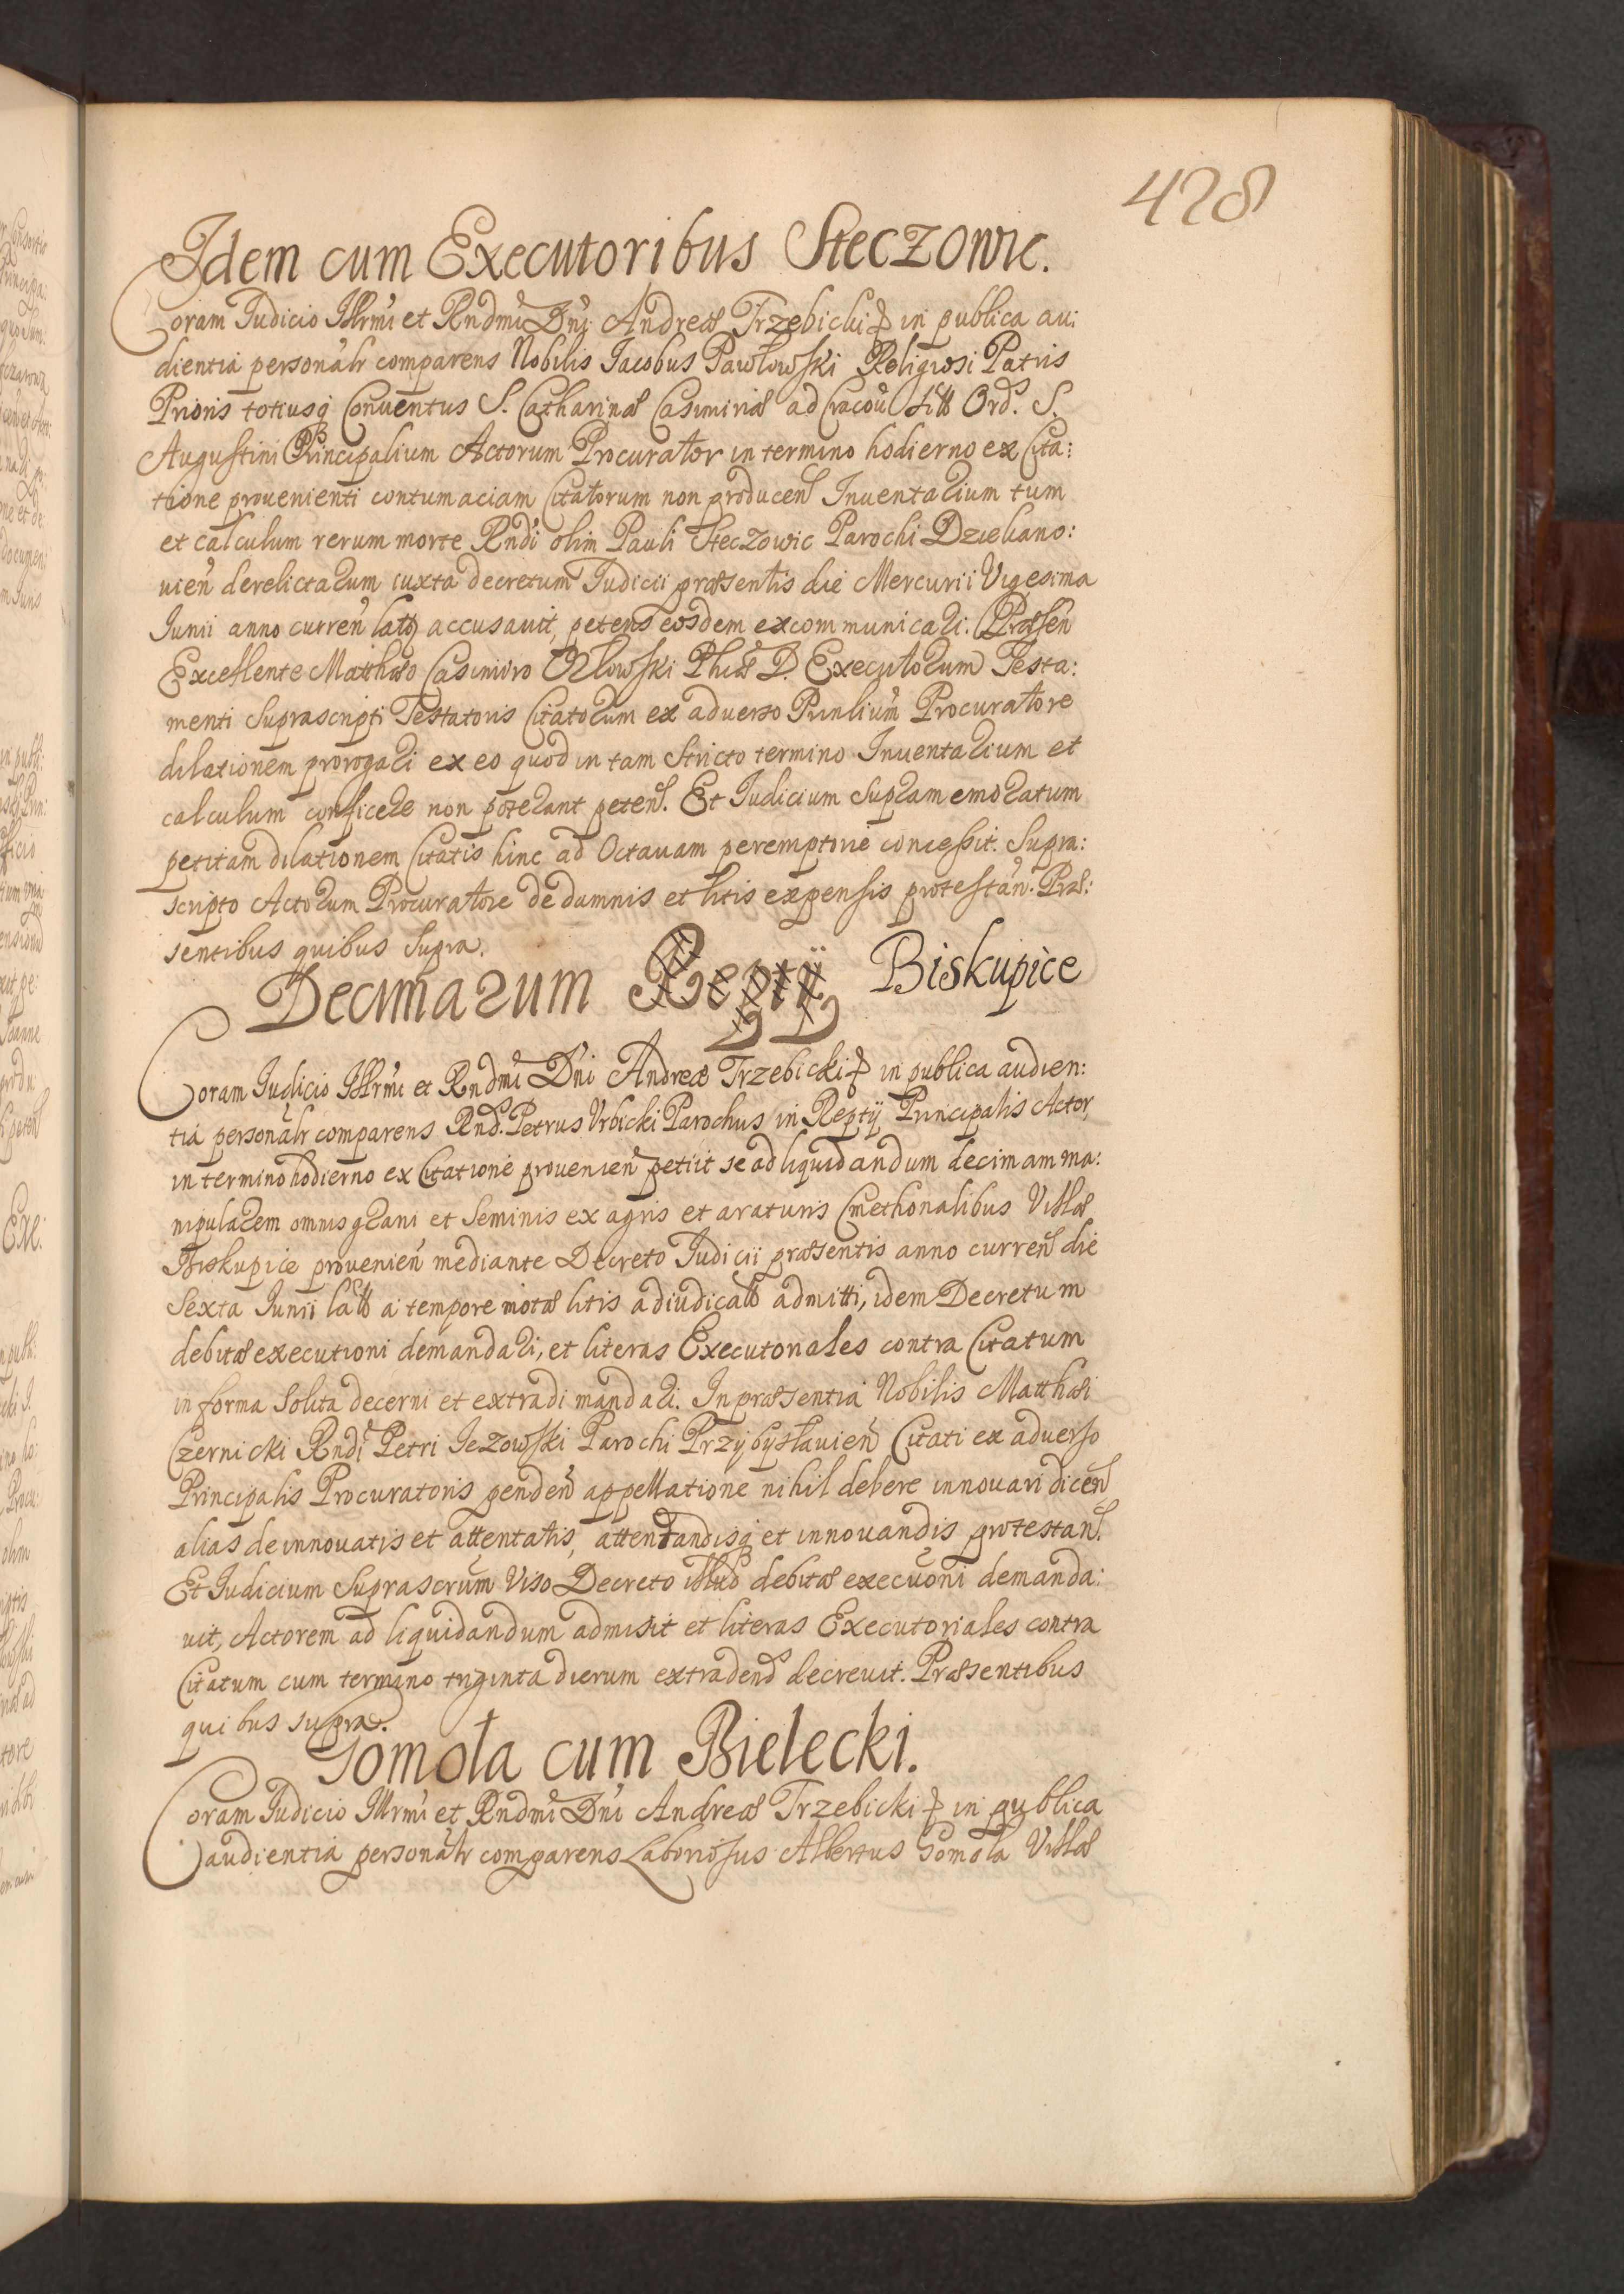 428
Idem cum Executoribus Steczowic.
Coram Iudicio Illrmi et Rndmi Dni Andreæ Trzebicki in publica au:
dientia personalr comparens Nobilis Iacobus Pawłowski Religiosi Patris
Prioris totiusq Conuentus S. Catharinæ Casimiriæ ad Cracou Ord. S.
Augustini Principalium Actorum Procurator in termino hodierno ex Cita:
tione prouenienti contumaciam Citatorum non producen Inuentarium tum
et calculum rerum morte Rndi olim Pauli Steczowic Parochi Dziekano:
uien derelictarum iuxta decretum Iudicii præsentis die Mercurii Vigesima
Iunii anno curren latt accusauit, petens eosdem excommunicari. Præsen
Excellente Matthæo Casimiro Orłowski Phiæ D. Executorum Testa:
menti Suprascripti Testatoris Citatorum ex aduerso Prinlium Procuratore
dilationem prorogari ex eo quod in tam Stricto termino Inuentarium et
calculum conficere non poterant peten. Et Iudicium Supramemoratum
petitam dilationem Citatis hinc ad Octauam peremptorie concessit. Supra:
scripto Actorum Procuratore de damnis et litis expensis protestan. Præ:
sentibus quibus Supra.
Decimarum Reptÿ Biskupice
Coram Iudicio Illrmi et Rndmi Dni Andreæ Trzebicki in publica audien:
tia personalr comparens Rnd. Petrus Vrbicki Parochus in Reptÿ Principalis Actor,
in termino hodierno ex Citatione prouenien petiit se ad liquidandum decimam ma:
nipularem omnis grani et Seminis ex agris et araturis Cmethonalibus Villæ
Biskupice prouenien mediante Decreto Iudicii præsentis anno curren die
Sexta Iunii latt a tempore motæ litis adiudicatt admitti, idem Decretum
debitæ executioni demandari, et literas Executoriales contra Citatum
in forma Solita decerni et extradi mandari. In præsentia Nobilis Matthæi
Czernicki Rndi Petri Iezowski Parochi Przÿbysłauien Citati ex aduerso
Principalis Procuratoris penden appellatione nihil debere innouari dicen
alias de innouatis et attentatis, attentandisq et innouandis protestan.
Et Iudicium Suprascrum Viso Decreto illud debitæ execuoni demanda:
uit, Actorem ad liquidandum admisit et literas Executoriales contra
Citatum cum termino triginta dierum extradend decreuit. Præsentibus
quibus supra.
Gomoła cum Bielecki.
Coram Iudicio Illrmi et Rndmi Dni Andreæ Trzebicki in publica
audientia personalr comparens Laboriosus Albertus Gomoła Villæ